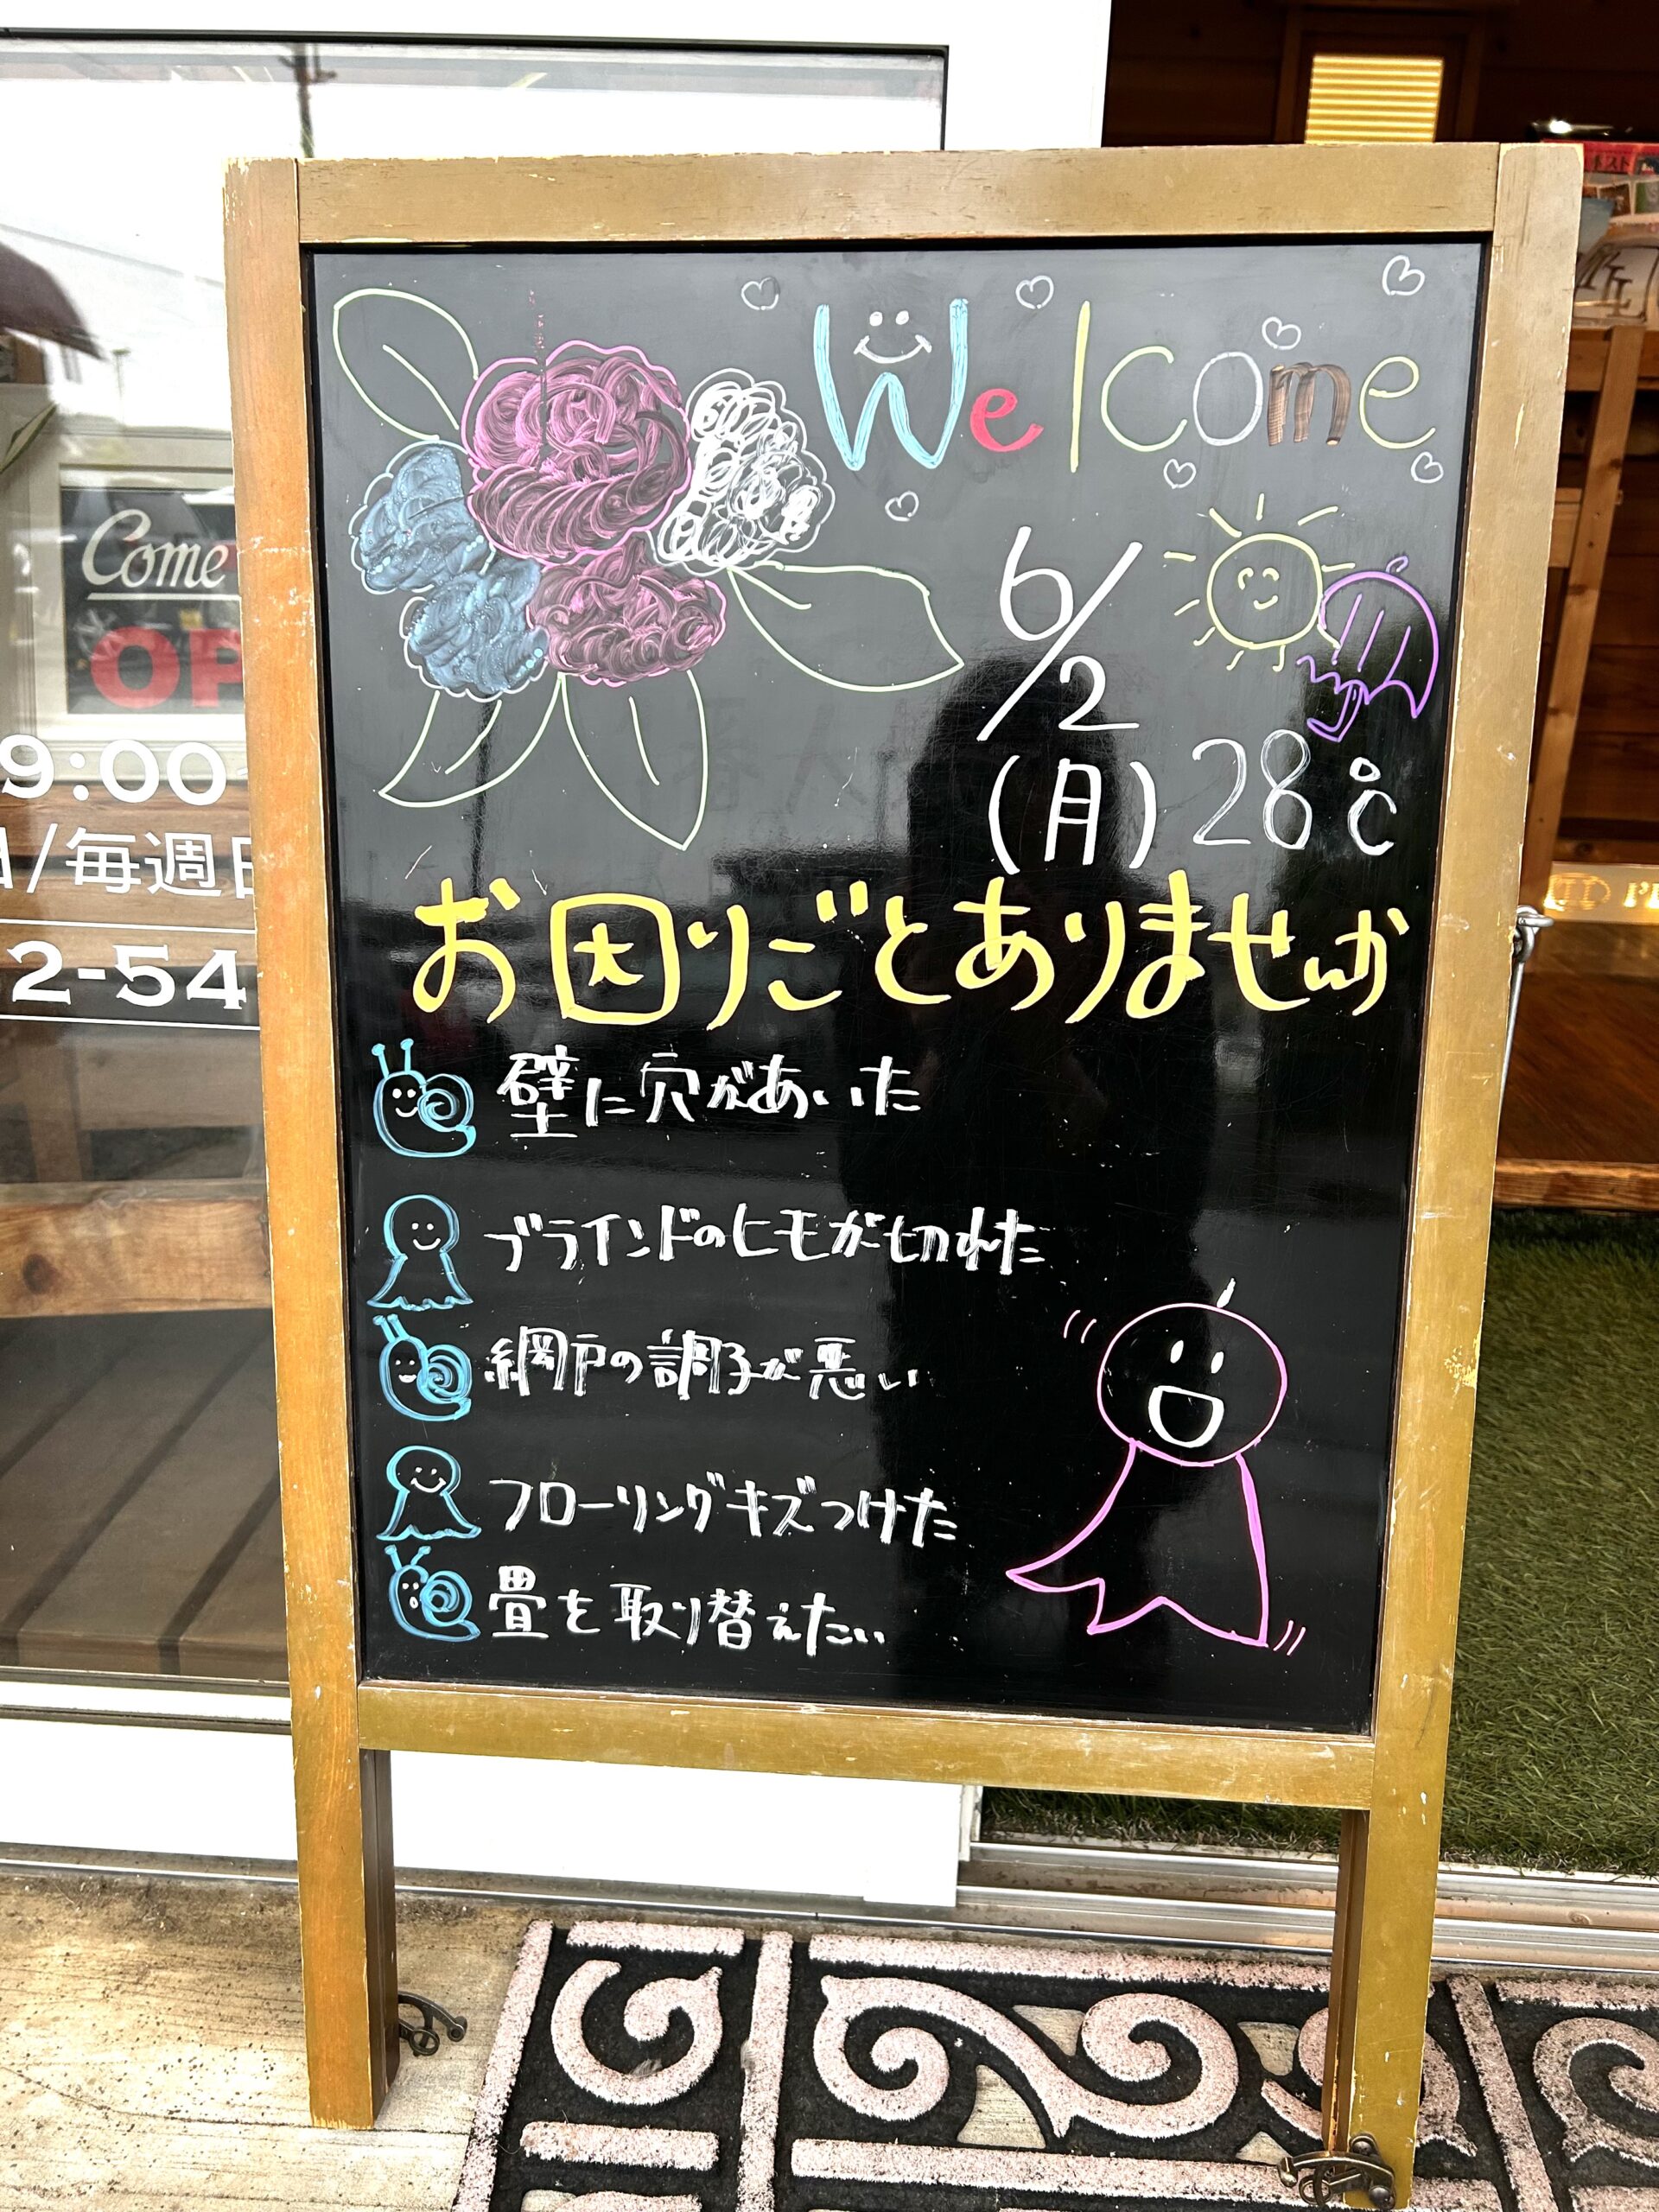 Welcome
6/2
(月) 28℃
お困りごとありませんか
壁に穴があいた
ブラインドのヒモが切れた
網戸の調子が悪い
フローリングキズつけた
畳を取り替えたい
Come
OP
9:00
/毎週日
2-54